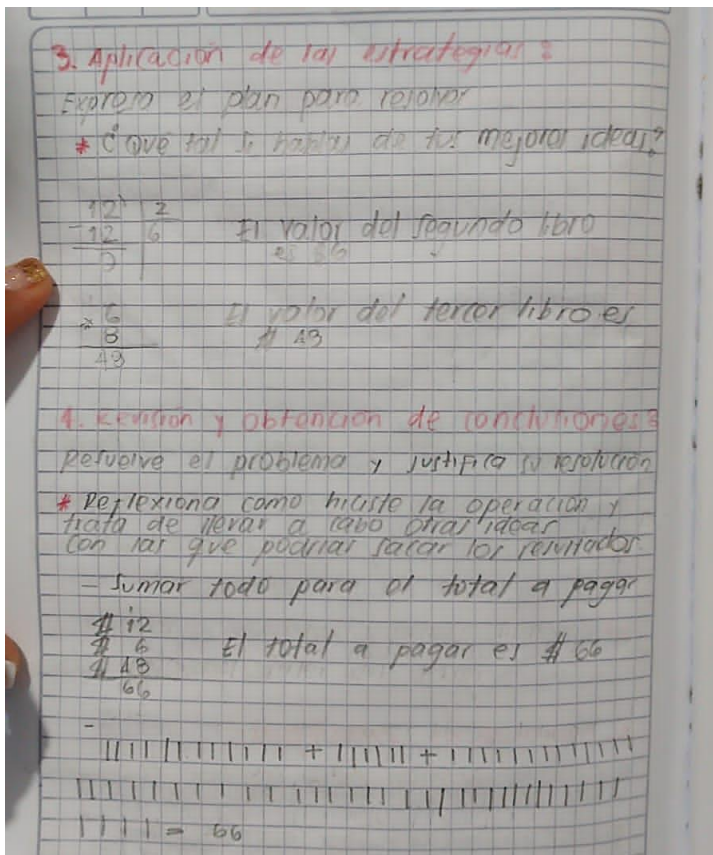 3. Aplicación de las estrategias:
Expreso el plan para resolver
* ¿Que tal si hablas de tus mejores ideas?
12 | 2
-12 6
0
El valor del segundo libro
es $6
6
× 8
48
El valor del tercer libro es
$ 48
4. Revisión y obtención de conclusiones:
Resuelve el problema y justifica su resolución
* Reflexiona como hiciste la operación y
trata de llevar a cabo otras ideas
con las que podrias sacar los resultados.
- Sumar todo para el total a pagar
$ 12
$ 6
$ 48
66
El total a pagar es $ 66
= 66